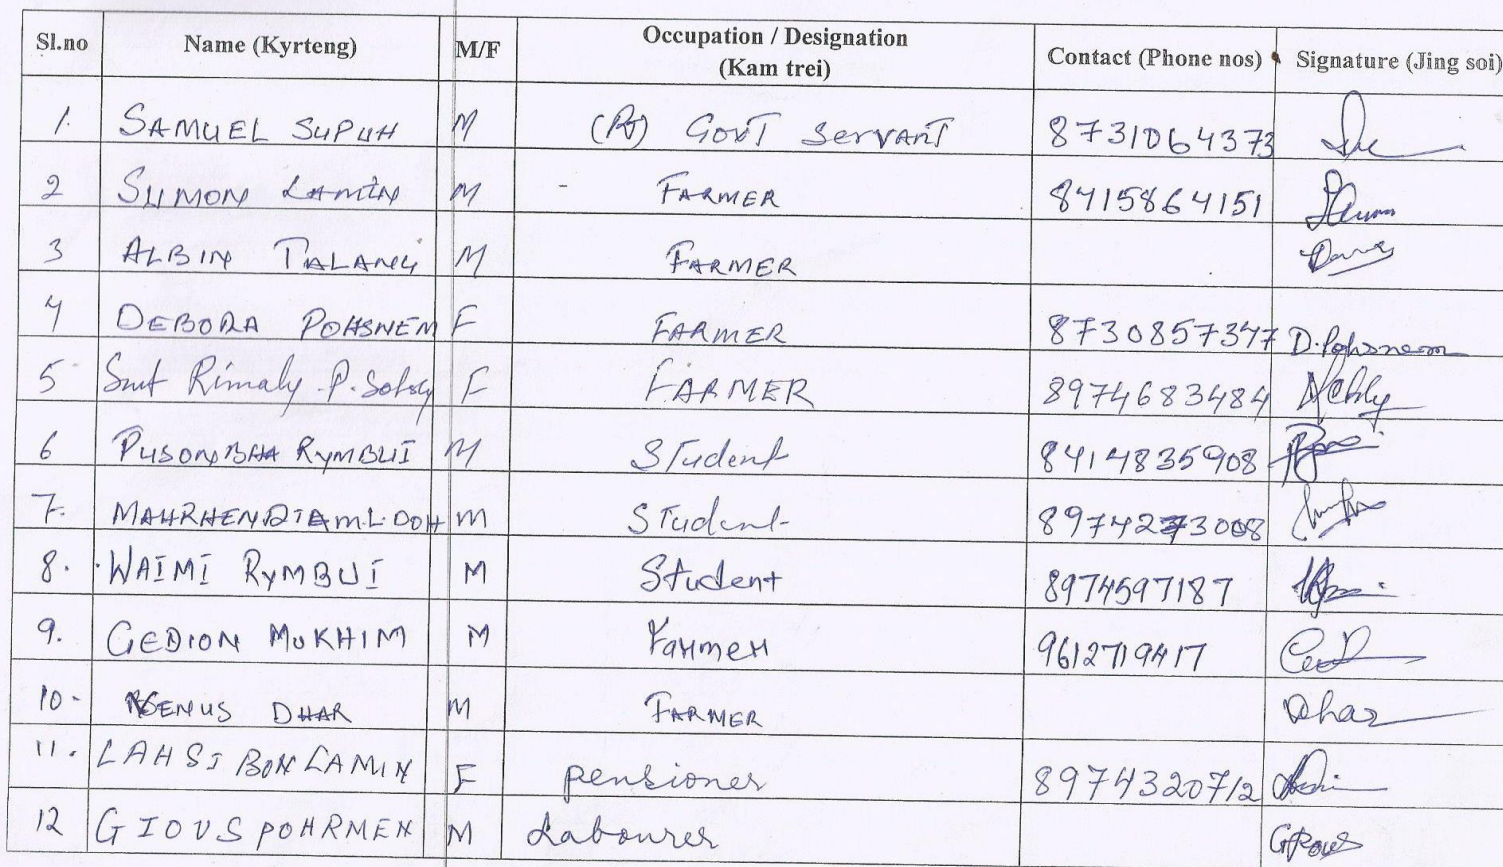 Sl.no Name (Kyrteng) M/F Occupation / Designation (Kam trei) Contact (Phone nos) Signature (Jing soi)
1. SAMUEL SUPUH M (Rt) GOVT Servant 8731064373
2 SUMON LAMIN M - FARMER 8415864151
3 ALBIN TALANG M FARMER
4 DEBORA POHSNEM F FARMER 8730857347 D. Pohsnem
5 Smt Rimaly P. F FARMER 8974683484
6 PUSONBHA RYMBUI M Student 8414835908
7. M.L. DOH M Student 8974273008
8. WAIMI RYMBUI M Student 8974597187
9. GEDION MUKHIM M Farmer 9612719417
10 - GENUS DHAR M FARMER Dhar
11. LAHSI BON LAMIN F pensioner 8974320712
12 GIOUS POHRMEN M Labourer GPous